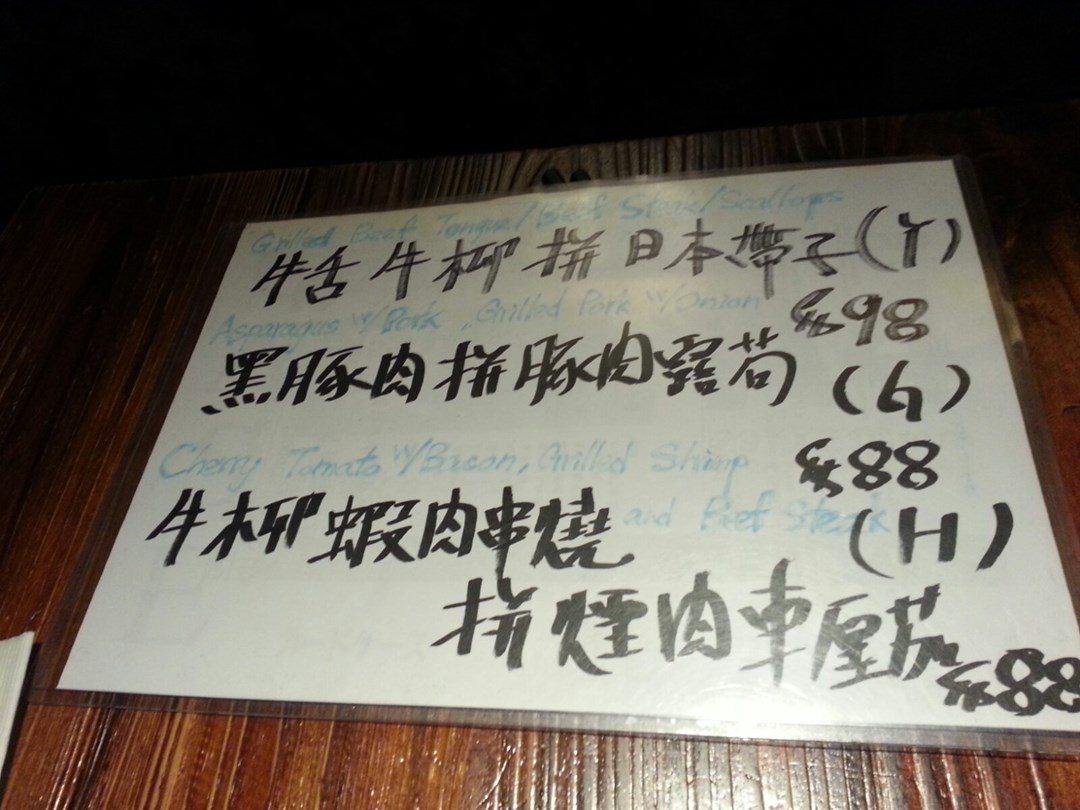 Grilled Beef Tongue/Beef Steak/Scallops
牛舌牛柳拼日本帶子(Y)
Asparagus w/Pork, Grilled Pork w/Onion
$98
黑豚肉拼豚肉露荀
(G)
$88
Cherry Tomato w/Bacon, Grilled Shimp
and Beef Steak
牛柳蝦肉串燒
(H)
拼煙肉車厘茄
$88